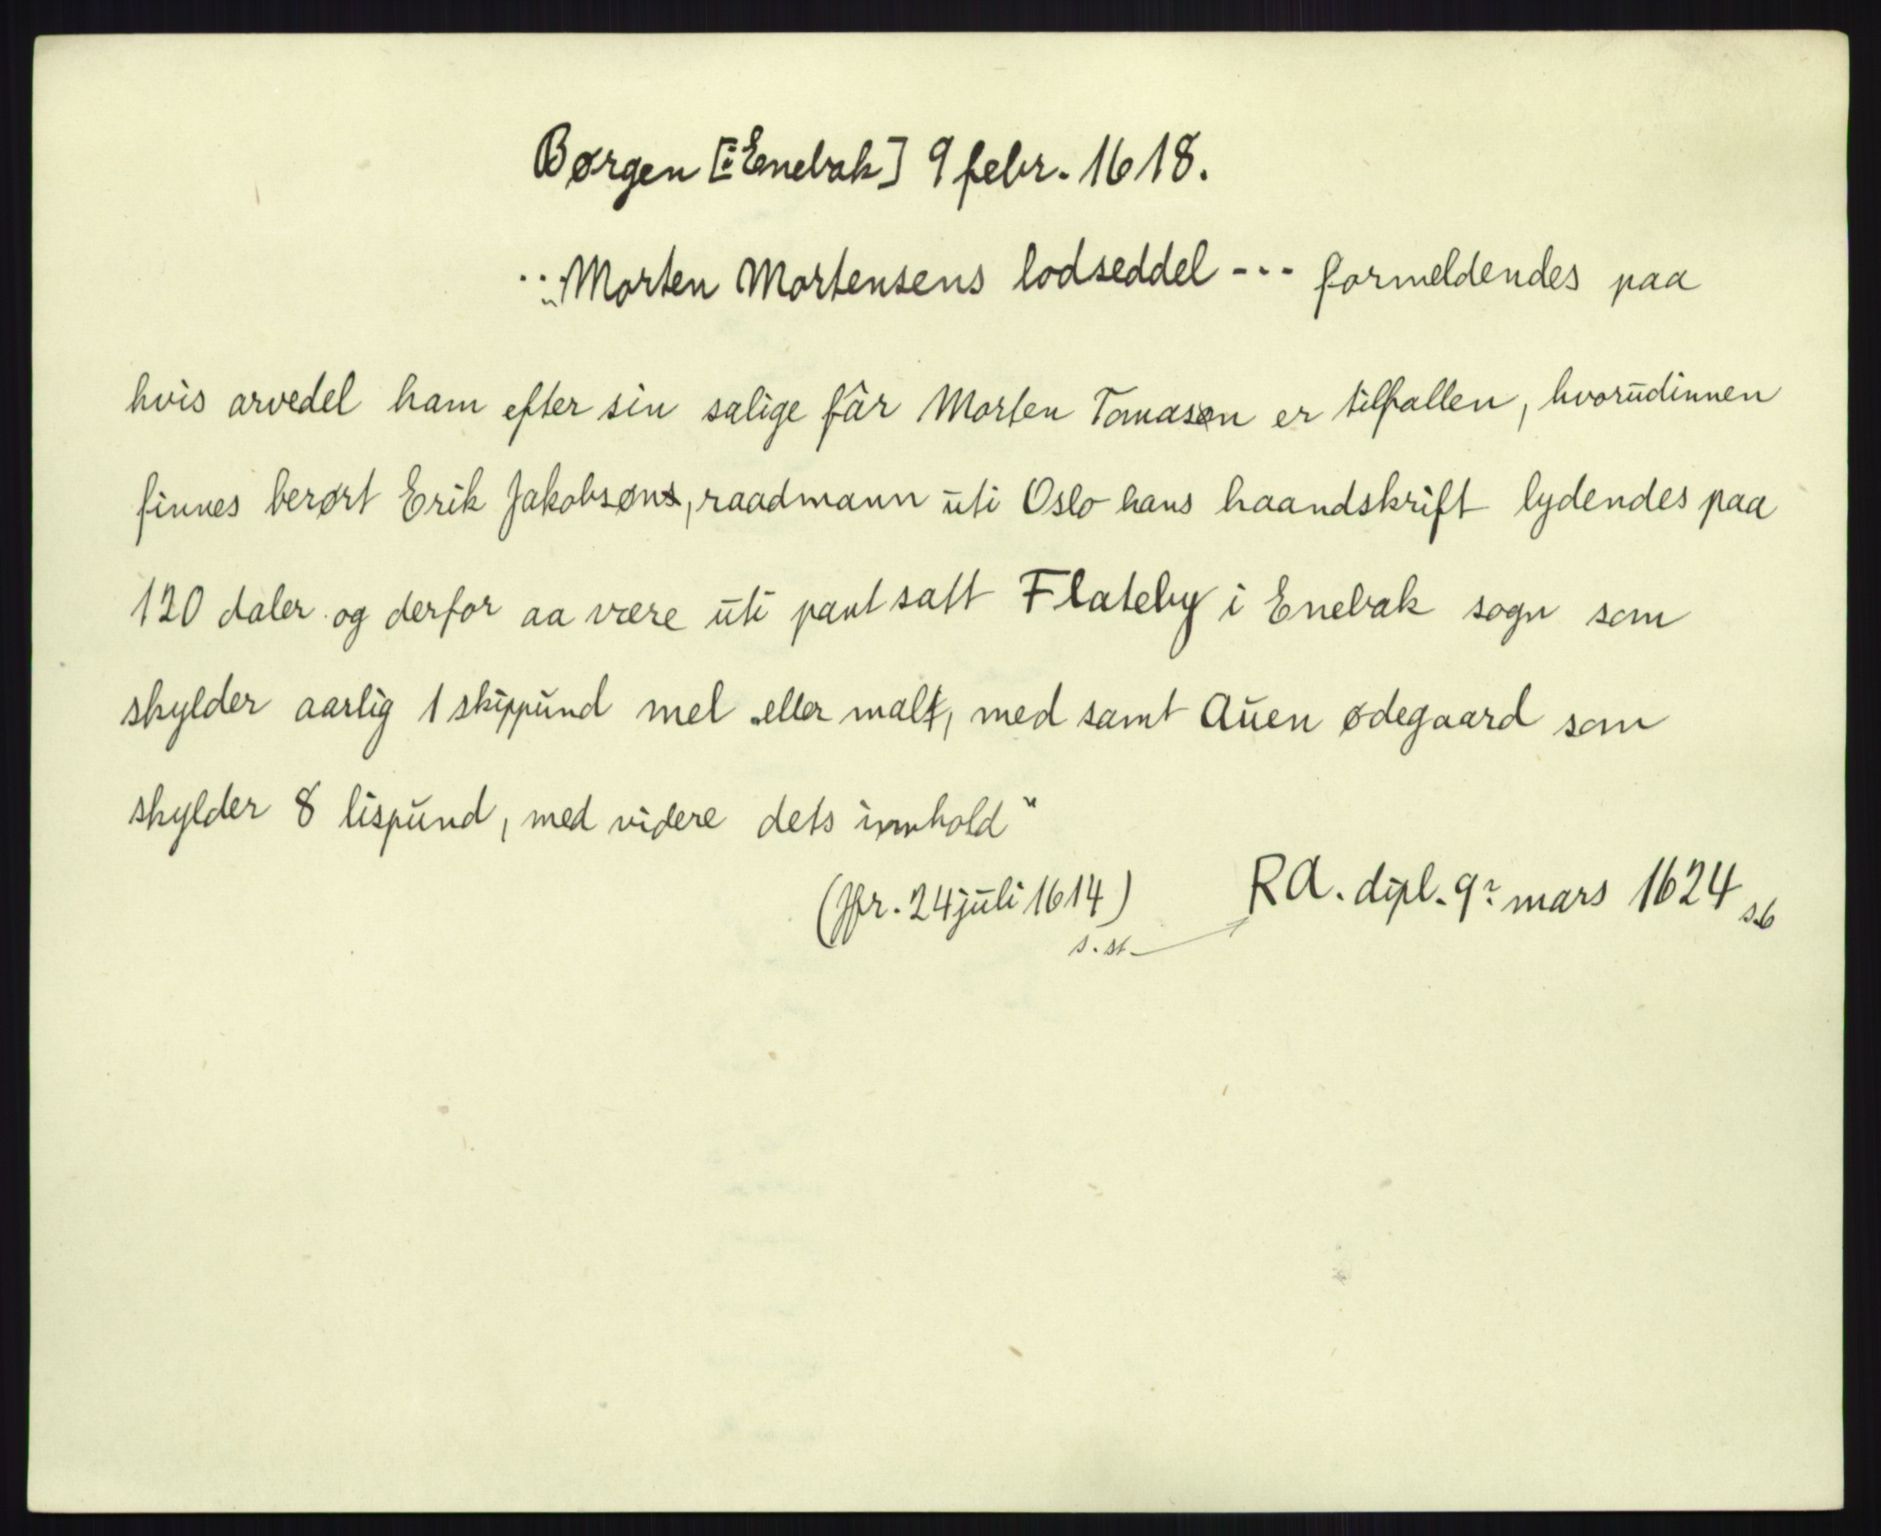 Børgen [i Enebak] 9 febr. 1618.
..„Morten Mortensens lodseddel --- formeldendes paa
hvis arvedel ham efter sin salige får Morten Tomasøn er tilfallen, hvorudinnen
finnes berørt Erik Jakobsøns, raadmann uti Oslo hans haandskrift lydendes paa
120 daler og derfor aa være uti pant satt Flateby i Enebak sogn som
skylder aarlig 1 skippund mel eller malt, med samt Auen ødegaard som
skylder 8 lispund, med videre dets innhold"
(Jfr. 24 juli 1614) RA. dipl. 9? mars 1624
s. st.